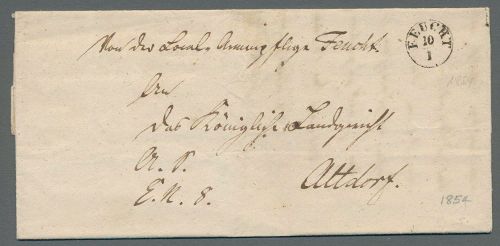 Von der Local-Armenpflege Feucht.
FEUCHT
10
1
An
das Königliche Landgericht
Altdorf.
E. N. 8.
1854